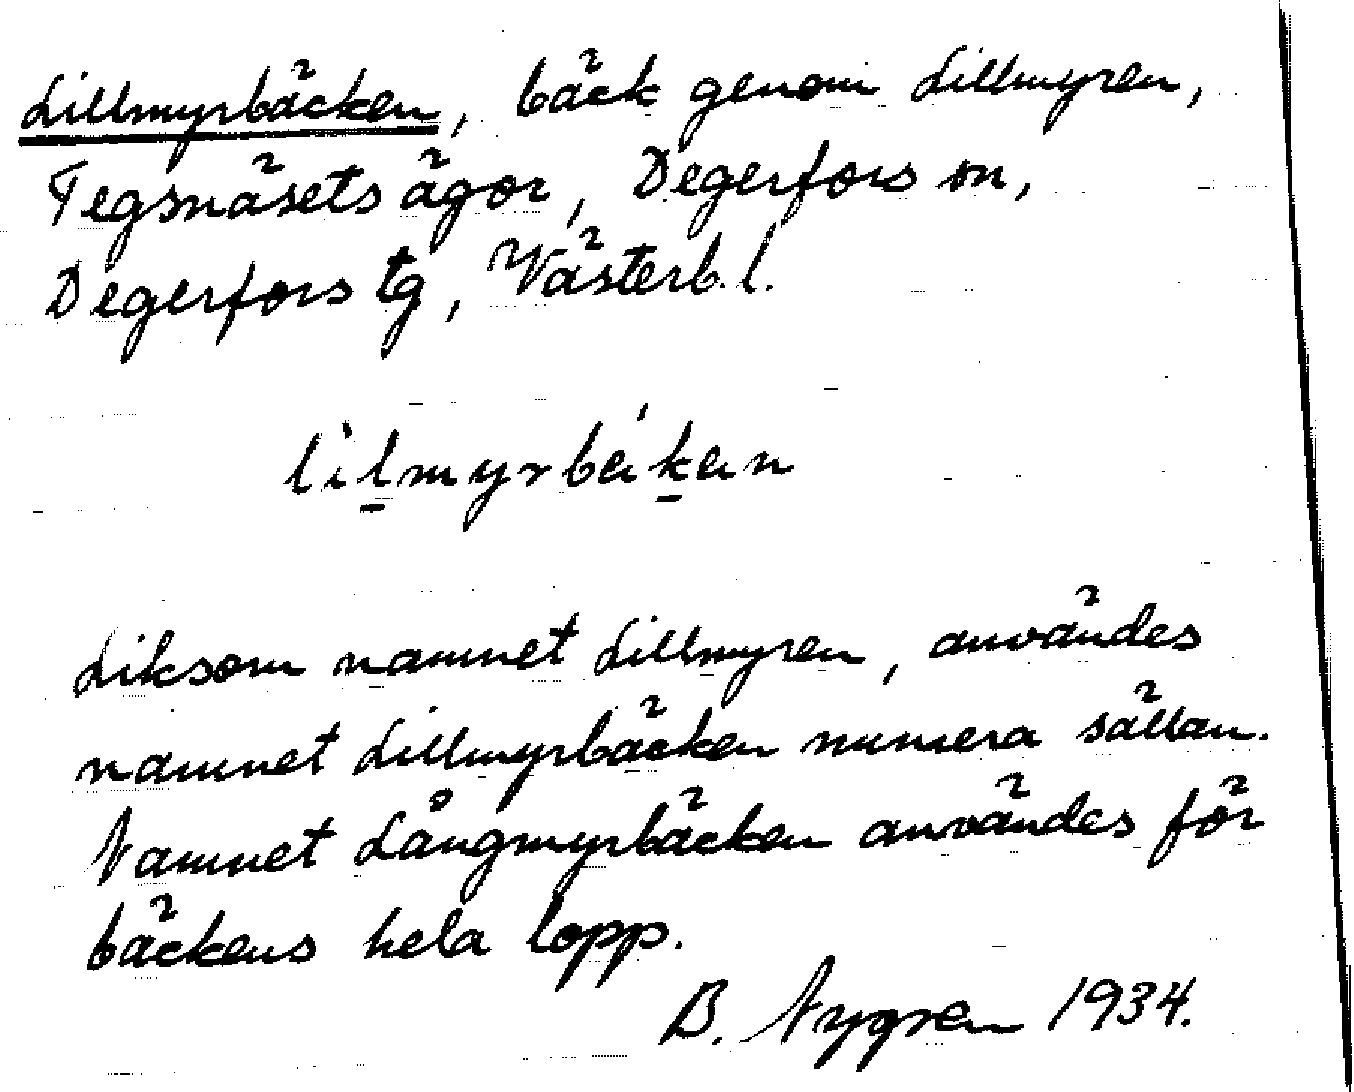 Lillmyrbäcken, bäck genom Lillmyren,
Tegsnäsets ägor, Degerfors sn,
Degerfors tg, Västerb. l.
lìlmyrbèk´en
Liksom namnet Lillmyren, användes
namnet Lillmyrbäcken numera sällan.
Namnet Långmyrbäcken användes för
bäckens hela lopp.
B. Nygren 1934.